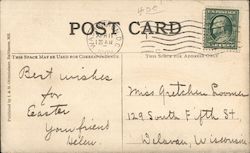 400
POST CARD
THIS SPACE MAY BE USED FOR CORRESPONDENCE
THIS SPACE FOR ADDRESS ONLY
Best wishes
for
Easter
Your friend
Helen.
Miss Gretchen
129 South Fifth St.
Delavan, Wisconsin